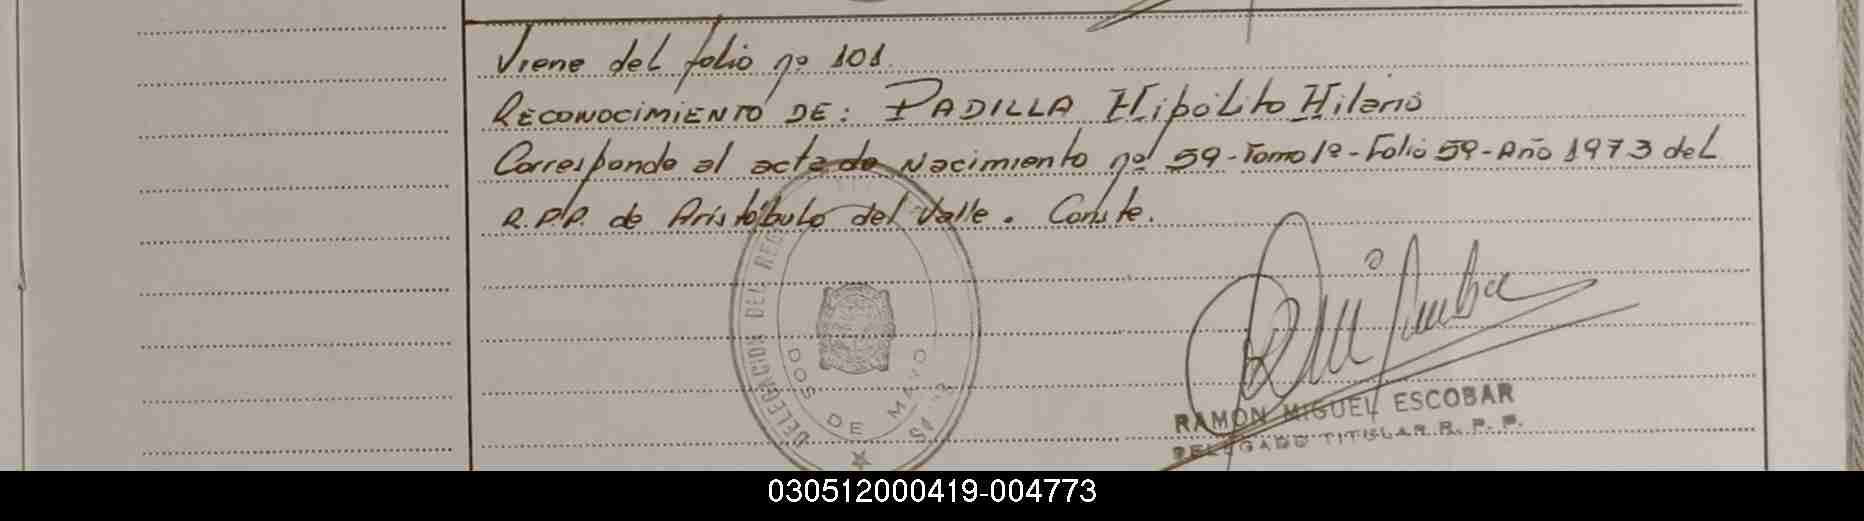 Viene del folio nº 101
RECONOCIMIENTO DE: PADILLA Hipólito Hilario
Corresponde al acta de Nacimiento nº 59-Tomo 1º-Folio 59-Año 1973 del
R.P.P. de Aristóbulo del Valle. Conste.
DELEGACION DEL REG
DOS DE MAYO
RAMON MIGUEL ESCOBAR
DELEGADO TITULAR R. P. P.
030512000419-004773